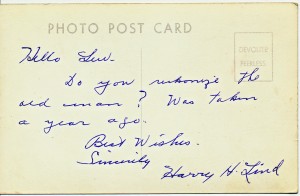 PHOTO POST CARD
DEVOLITE
PEERLESS
Hello Luv.
Do you rekonize the
old man? Was taken
a year ago.
Best Wishes.
Sincerily
Harry H. Lind